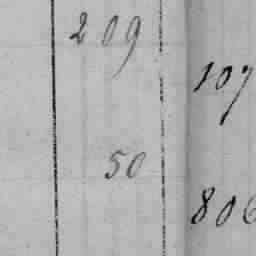 209
107
50
806